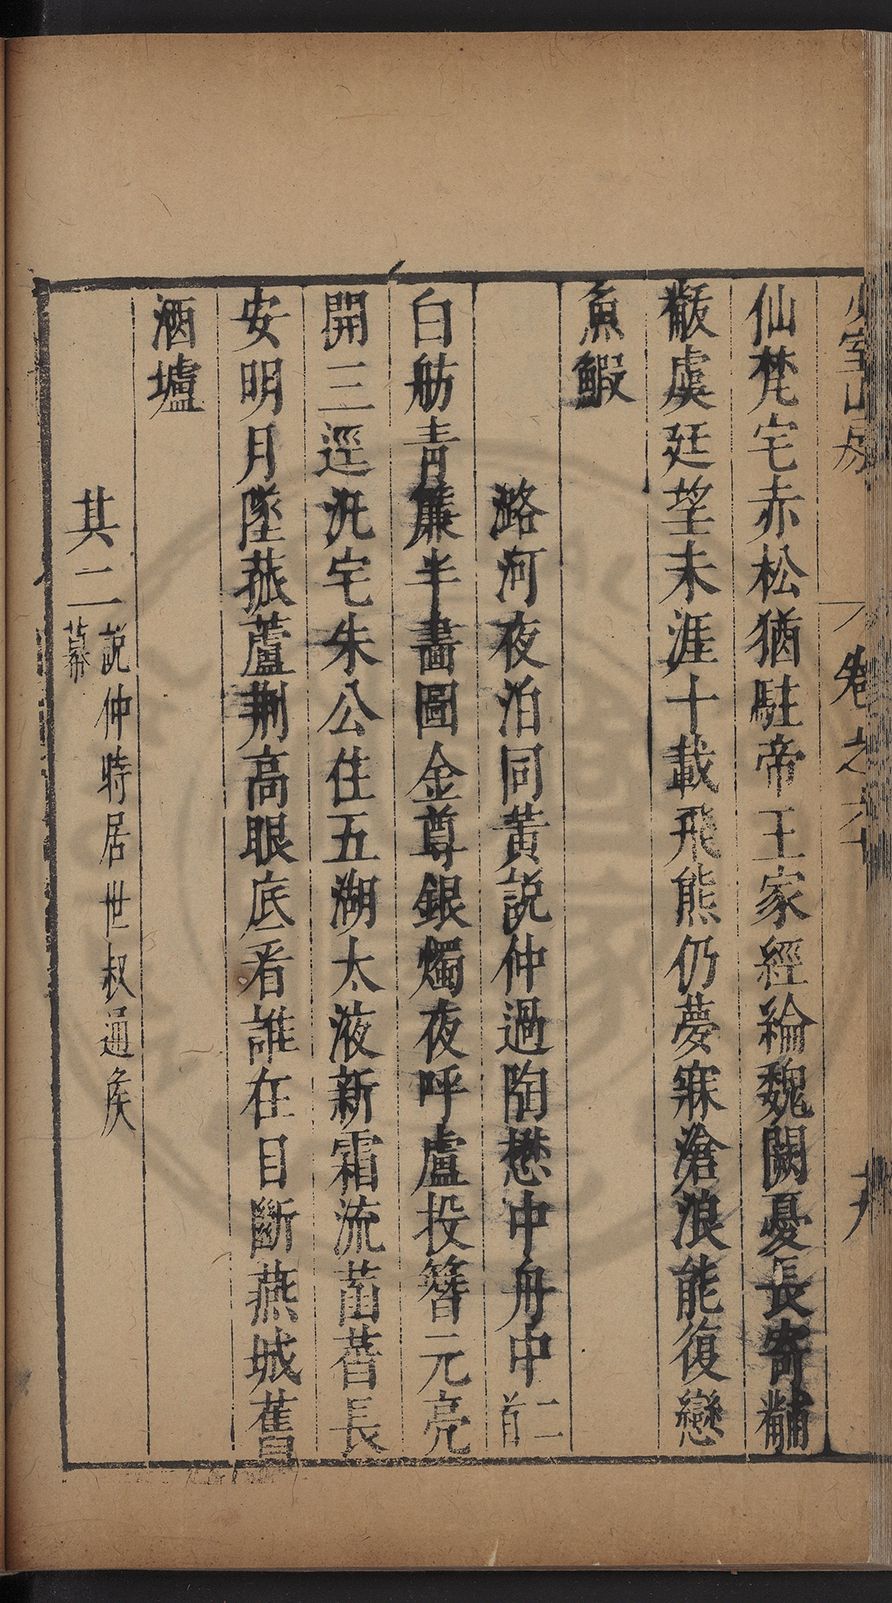 少室山房
卷之六
仙梵宅赤松猶駐帝王家經綸魏闕憂長寄黼
黻虞廷望未涯十載飛熊仍夢寐滄浪能復戀
魚鰕
潞河夜泊同黃說仲過陶懋中舟中二首
白舫青簾半畵圖金尊銀燭夜呼盧投簪元亮
開三逕汎宅朱公住五湖太液新霜流菡萏長
安明月墜菰蘆荆高眼底看誰在目斷燕城舊
酒壚
其二說仲時居世叔通矦幕